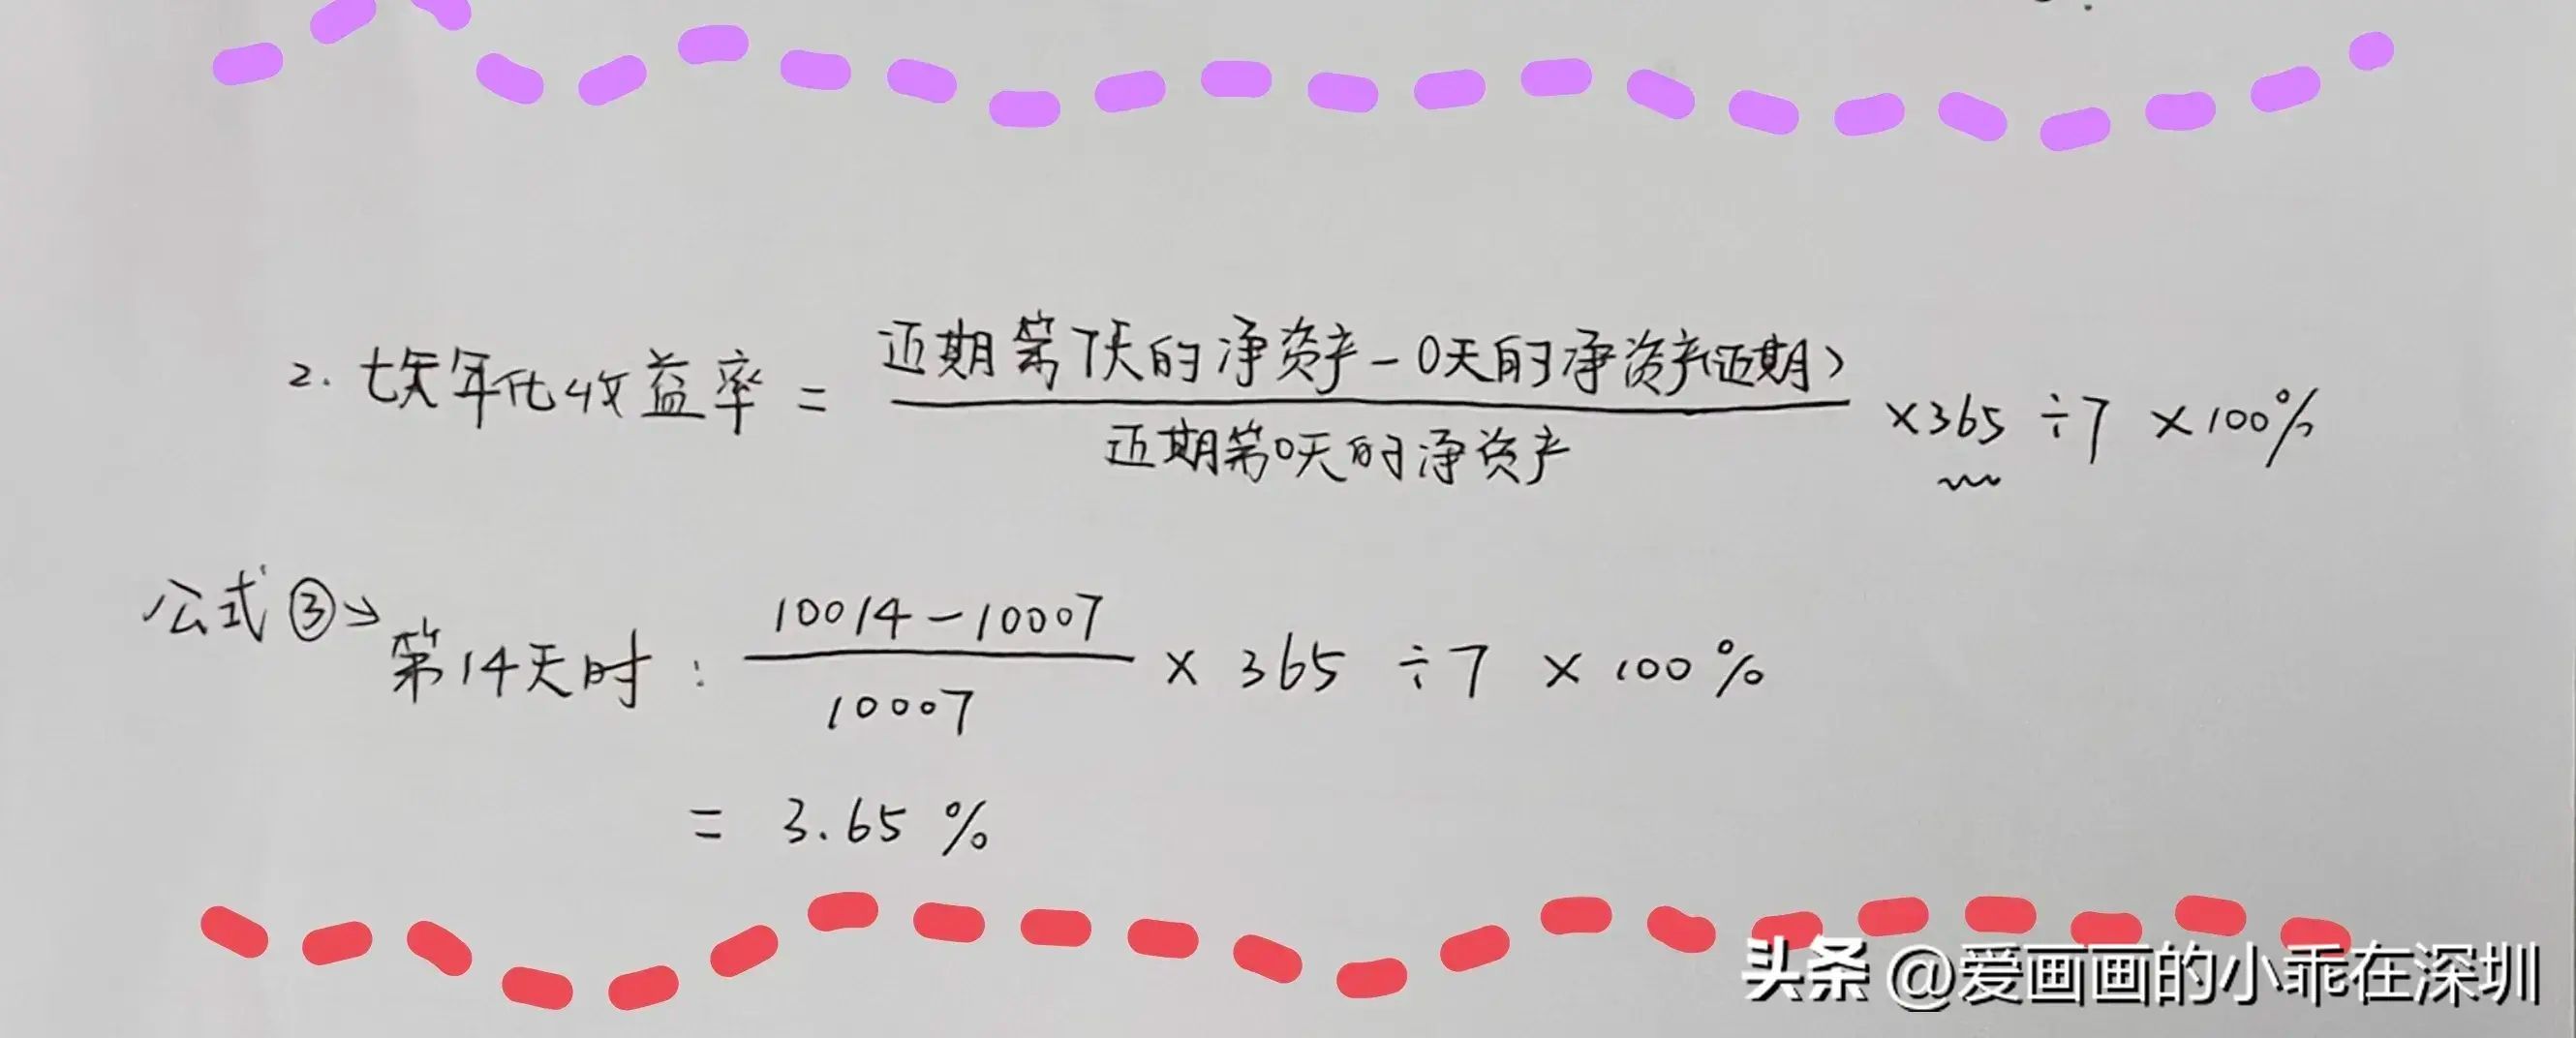 2. 七天年化收益率 = 近期第7天的净资产-0天的净资产(近期) / 近期第0天的净资产 ×365 ÷7 ×100%
公式③→
第14天时: 10014-10007 / 10007 × 365 ÷7 × 100%
= 3.65 %
头条 @爱画画的小乖在深圳